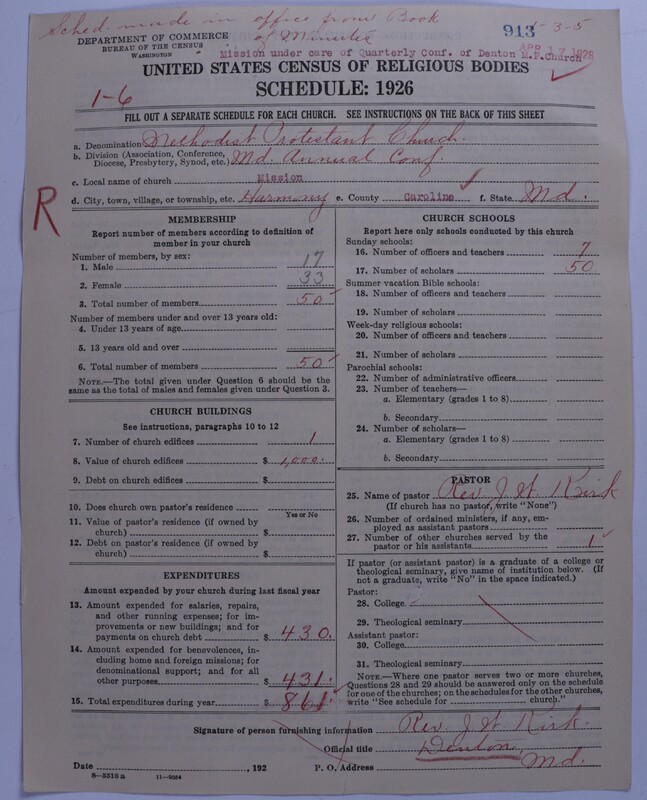 Sched. made in office from Book
of Minutes
913 5-3-5
DEPARTMENT OF COMMERCE
BUREAU OF THE CENSUS
WASHINGTON
Mission under care of Quarterly Conf. of Denton M.P.Church
APR 17 1928
UNITED STATES CENSUS OF RELIGIOUS BODIES
SCHEDULE: 1926
1-6
FILL OUT A SEPARATE SCHEDULE FOR EACH CHURCH. SEE INSTRUCTIONS ON THE BACK OF THIS SHEET
a. Denomination Methodist Protestant Church.
b. Division (Association, Conference, Diocese, Presbytery, Synod, etc.) Md. Annual Conf.
c. Local name of church Mission
d. City, town, village, or township, etc. Harmony e. County Caroline f. State Md.
R
MEMBERSHIP
Report number of members according to definition of
member in your church
Number of members, by sex:
1. Male 17
2. Female 33
3. Total number of members 50
Number of members under and over 13 years old:
4. Under 13 years of age
5. 13 years old and over
6. Total number of members 50
NOTE.—The total given under Question 6 should be the
same as the total of males and females given under Question 3.
CHURCH BUILDINGS
See instructions, paragraphs 10 to 12
7. Number of church edifices 1
8. Value of church edifices $ 1,000.
9. Debt on church edifices $
10. Does church own pastor's residence
Yes or No
11. Value of pastor's residence (if owned by
church) $
12. Debt on pastor's residence (if owned by
church) $
EXPENDITURES
Amount expended by your church during last fiscal year
13. Amount expended for salaries, repairs,
and other running expenses; for im-
provements or new buildings; and for
payments on church debt $ 430.
14. Amount expended for benevolences, in-
cluding home and foreign missions; for
denominational support; and for all
other purposes $ 431.
15. Total expenditures during year $ 861.
CHURCH SCHOOLS
Report here only schools conducted by this church
Sunday schools:
16. Number of officers and teachers 7
17. Number of scholars 50
Summer vacation Bible schools:
18. Number of officers and teachers
19. Number of scholars
Week-day religious schools:
20. Number of officers and teachers
21. Number of scholars
Parochial schools:
22. Number of administrative officers
23. Number of teachers—
a. Elementary (grades 1 to 8)
b. Secondary
24. Number of scholars—
a. Elementary (grades 1 to 8)
b. Secondary
PASTOR
25. Name of pastor Rev. J. W. Kirk
(If church has no pastor, write "None")
26. Number of ordained ministers, if any, em-
ployed as assistant pastors
27. Number of other churches served by the
pastor or his assistants 1
If pastor (or assistant pastor) is a graduate of a college or
theological seminary, give name of institution below. (If
not a graduate, write "No" in the space indicated.)
Pastor:
28. College
29. Theological seminary
Assistant pastor:
30. College
31. Theological seminary
NOTE.—Where one pastor serves two or more churches,
Questions 28 and 29 should be answered only on the schedule
for one of the churches; on the schedules for the other churches,
write "See schedule for church."
Signature of person furnishing information Rev. J. W. Kirk.
Official title Denton,
Date , 192 P. O. Address Md.
8—5518 a 11—9084